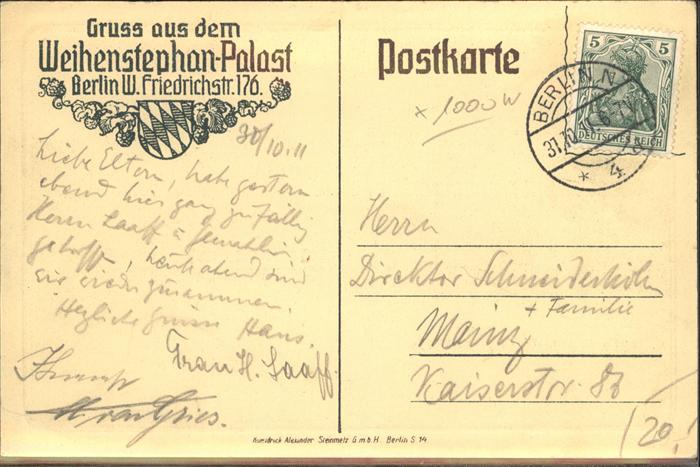 Gruss aus dem
Weihenstephan-Palast
Berlin W. Friedrichstr. 176.
30/10.11
Liebe Eltern, habe gestern
abend hier ganz zufällig
Herrn Laaff u Gemahlin
getroff, heute abend sind
wir wieder zusammen.
Herzliche Grüsse Hans.
Frau H. Laaff.
Postkarte
x 1000 W
5 5
DEUTSCHES REICH
BERLIN. N.
* 4
Herrn
Direktor
+ Familie
Mainz
Kaiserstr.
20!
Kunstdruck Alexander Steinmetz G.m.b.H. Berlin S 14